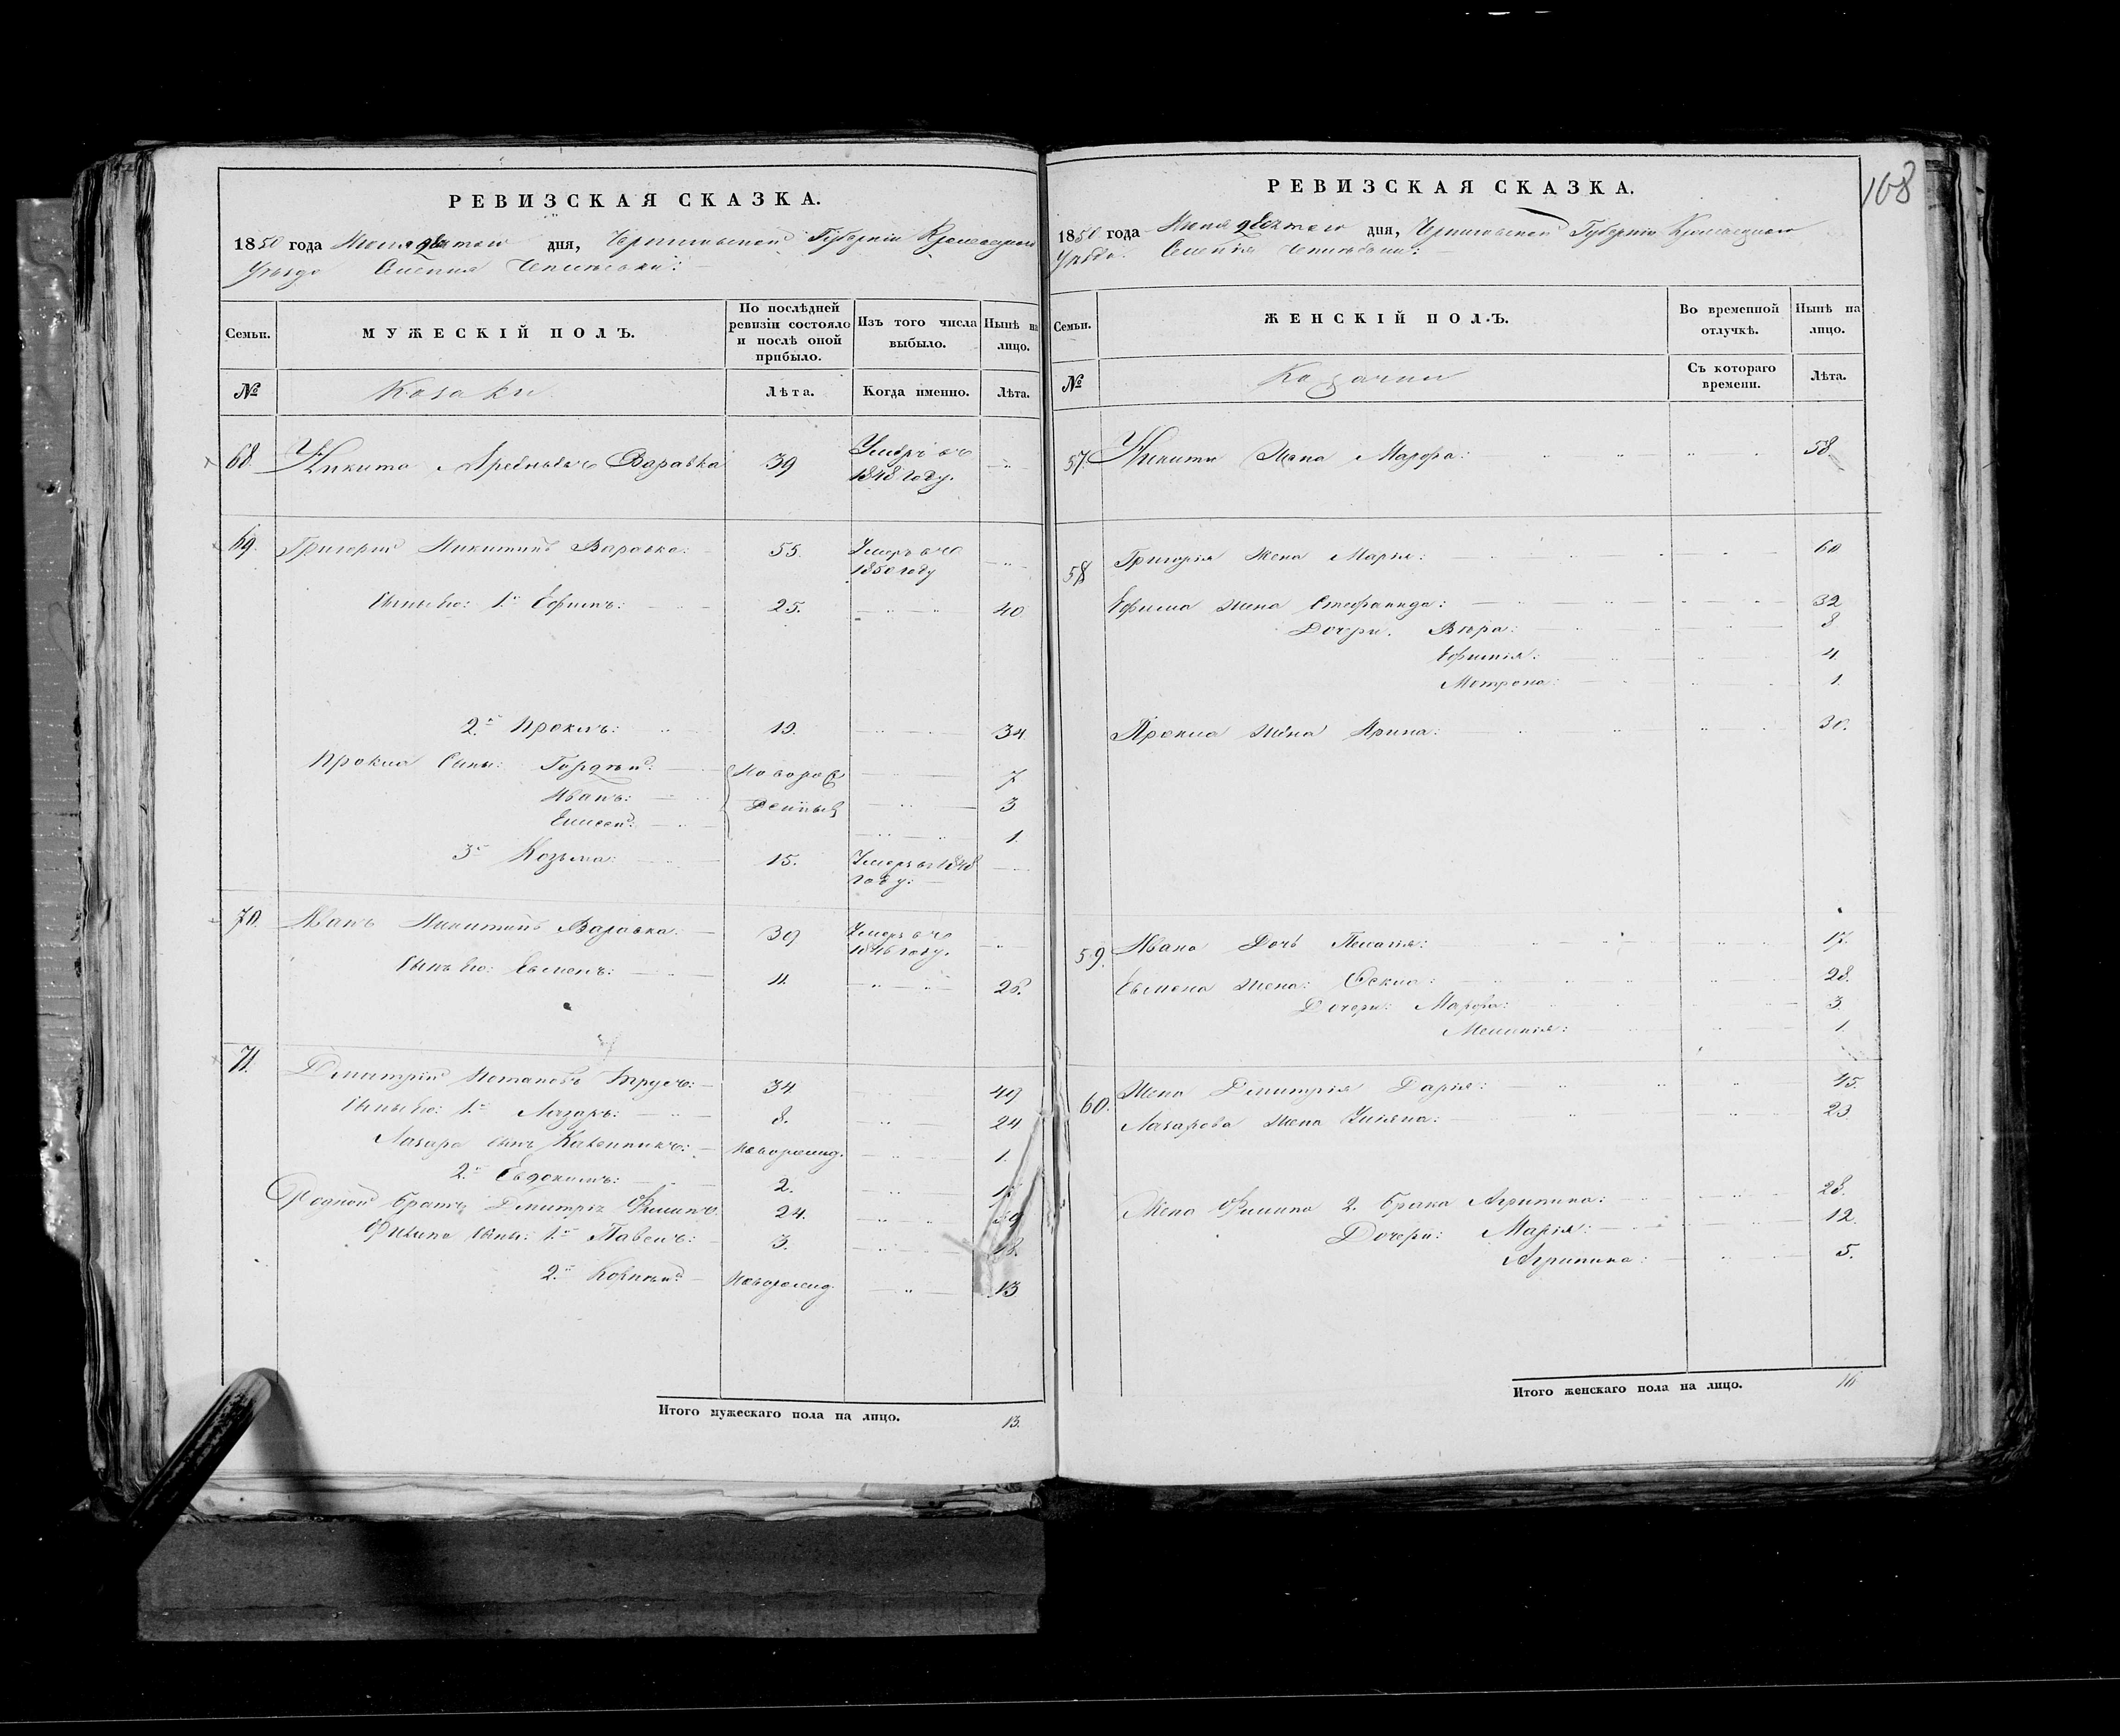 108
РЕВИЗСКАЯ СКАЗКА.
1850 года дня, Черниговской Губерніи Кролевецкаго
Уѣзда Селенія
Семьи.
МУЖЕСКІЙ ПОЛЪ.
По послѣдней ревизіи состояло и послѣ оной прибыло.
Изъ того числа выбыло.
Нынѣ на лицо.
№
Козаки
Лѣта.
Когда именно.
Лѣта.
68. Никита Варавка 39 Умеръ въ
1848 году.
69. Григорій Никитинъ Варавка: 55. Умеръ въ
1850 году
Сыны его: 1й Ефимъ: 25. 40
2й Прокпъ: 19. 34
Сыны: Гордѣй: Новорож 7
Иванъ: денныя 3
Елисей: 1.
3й Козьма: 15. Умеръ въ 1848
году:
70. Иванъ Никитинъ Варавка: 39 Умеръ въ
1846 году.
Сынъ его: Евменъ: 11. 26.
71. Дмитрій Потаповъ 34. 49
Сыны его: 1й Лазарь: 8. 24
Лазаря сынъ Новорожд. 1.
2й Евдокимъ: 2.
Родной братъ Дмитрія Филипъ 24. 39
Филипа сыны: 1й Павелъ: 3. 18.
2й Корнѣй Новорожд. 13
Итого мужескаго пола на лицо. 13.
РЕВИЗСКАЯ СКАЗКА.
1850 года дня, Черниговской Губерніи Кролевецкаго
Уѣзда. Селенія
Семьи.
ЖЕНСКІЙ ПОЛЪ.
Во временной отлучкѣ.
Нынѣ на лицо.
№
Козачки
Съ котораго времени.
Лѣта.
57. Никиты Жена Марфа: 58
58 Григорія Жена Марія: 60
Ефима жена Стефанида: 32
Дочери. Вѣра: 8
Ефимія: 4
Мотрона: 1.
жена Ирина: 30.
59. Ивана Дочь Пелагія: 17.
Евмена жена: Фекла: 28.
Дочери: Марфа: 3.
Меланія: 1.
60. Жена Дмитрія Дарія: 45.
Лазарева жена Уліяна: 23
Жена Филипа 2. брака Агрипина: 28.
Дочери: Марія: 12.
Агрипина: 5.
Итого женскаго пола на лицо. 16